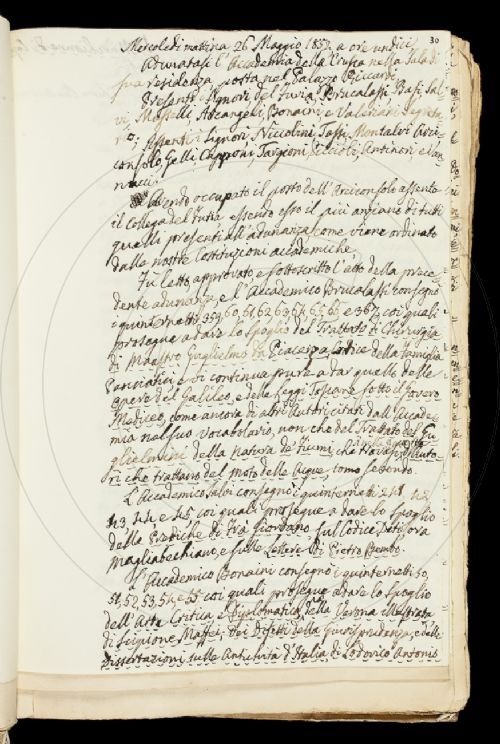 30
Mercoledì mattina 26 Maggio 1852 a ore undici
Adunatasi l'Accademia della Crusca nella Sala di
sua residenza posta nel Palazzo Riccardi
Presenti i Signori Del Furia, Brucalassi, Basi, Sal-
vi, Masselli, Arcangeli, Bonaini e Valeriani Segreta-
rio; Assenti i Signori Niccolini, Taffi, Montalvi Arci-
consolo, Gelli, Capponi, Targioni, Puccioli, Antinori e Van-
nucci.
Avendo occupato il posto dell'Arciconsolo assente
il Collega del Furia essendo esso il più anziano di tutti
quelli presenti all'adunanza, come viene ordinato
dalle nostre Costituzioni accademiche.
Fu letto, approvato e sottoscritto l'atto della prece-
dente adunanza, e l'Accademico Brucalassi consegnò
i quinternetti 359, 60, 61, 62, 63, 64, 65, 66 e 367, coi quali
prosegue a dare lo spoglio del Trattato di Chirurgia
di Maestro Guglielmo da Piacenza, Codice della famiglia
Panciatichi e vi continua pure a dar quello delle
Opere del Galileo, e delle Leggi Toscane sotto il Governo
Mediceo, come ancora di altri Autori citati dall'Accade-
mia nel suo Vocabolario, non che del Trattato del Gu-
glielmini della natura de' fiumi, che trovasi Auto-
ri che trattano del Moto delle Acque, tomo secondo.
L'Accademico Salvi consegnò i quinternetti 241, 42
43, 44, e 45 coi quali prosegue a dare lo spoglio
delle Prediche di Fra Giordano sul Codice, Detti ora
Magliabechiano, e sulle Lettere di Pietro Bembo.
L'Accademico Bonaini consegnò i quinternetti 50,
51, 52, 53, 54, e 55 coi quali prosegue a dare lo spoglio
dell'Arte Critica e Diplomatica, della Verona illustrata
di Scipione Maffei, dei Difetti della Giurisprudenza, e delle
Dissertazioni sulle Antichità d'Italia di Lodovico Antonio